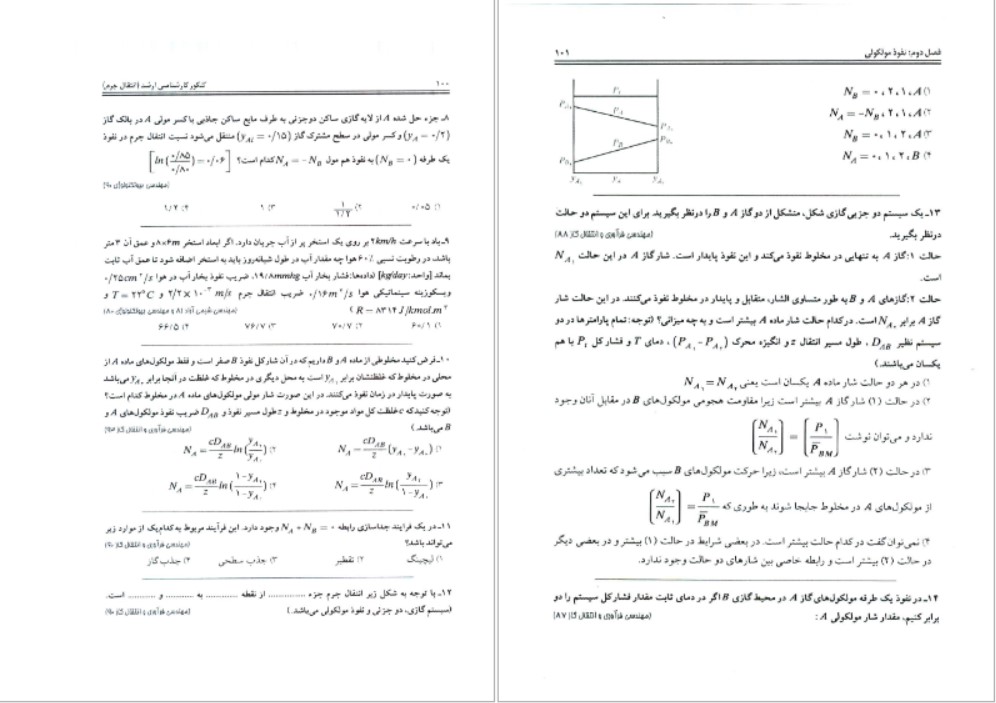 فصل دوم: نفوذ مولکولی ۱۰۱
P_t
P_A
P_B
۱) N_B = ۰ ، ۲ ، ۱ ، A
۲) N_A = -N_B ، ۲ ، ۱ ، A
۳) N_B = ۰ ، ۱ ، ۲ ، A
۴) N_A = ۰ ، ۱ ، ۲ ، B
۱۳ـ یک سیستم دو جزیی گازی شکل، متشکل از دو گاز A و B را درنظر بگیرید. برای این سیستم دو حالت
درنظر بگیرید. (مهندسی فرآوری و انتقال گاز ۸۸)
حالت ۱: گاز A به تنهایی در مخلوط نفوذ می‌کند و این نفوذ پایدار است. شار گاز A در این حالت N_{A۱}
است.
حالت ۲: گازهای A و B به طور متساوی الشار، متقابل و پایدار در مخلوط نفوذ می‌کنند. در این حالت شار
گاز A برابر N_{A۲} است. در کدام حالت شار ماده A بیشتر است و به چه میزانی؟ (توجه: تمام پارامترها در دو
سیستم نظیر D_{AB} ، طول مسیر انتقال z و انگیزه محرک (P_{A۱} - P_{A۲}) ، دمای T و فشار کل P_t با هم
یکسان می‌باشند.)
۱) در هر دو حالت شار ماده A یکسان است یعنی N_{A۱} = N_{A۲}
۲) در حالت (۱) شار گاز A بیشتر است زیرا مقاومت هجومی مولکول‌های B در مقابل آنان وجود
ندارد و می‌توان نوشت [N_{A۱}/N_{A۲}] = [P_t/P̄_{BM}]
۳) در حالت (۲) شار گاز A بیشتر است، زیرا حرکت مولکول‌های B سبب می‌شود که تعداد بیشتری
از مولکول‌های A در مخلوط جابجا شوند به طوری که [N_{A۲}/N_{A۱}] = P_t/P̄_{BM}
۴) نمی‌توان گفت در کدام حالت بیشتر است. در بعضی شرایط در حالت (۱) بیشتر و در بعضی دیگر
در حالت (۲) بیشتر است و رابطه خاصی بین شارهای دو حالت وجود ندارد.
۱۴ـ در نفوذ یک طرفه مولکول‌های گاز A در محیط گازی B اگر در دمای ثابت مقدار فشار کل سیستم را دو
برابر کنیم، مقدار شار مولکولی A : (مهندسی فرآوری و انتقال گاز ۸۷)
۱۰۰ کنکور کارشناسی ارشد (انتقال جرم)
۸ـ جزء حل شده A از لایه گازی ساکن دوجزئی به طرف مایع ساکن جاذبی با کسر مولی A در بالک گاز
(y_A = ۰/۲) و کسر مولی در سطح مشترک گاز (y_{Ai} = ۰/۱۵) منتقل می‌شود نسبت انتقال جرم در نفوذ
یک طرفه (N_B = ۰) به نفوذ هم مول N_A = -N_B کدام است؟ [ln(۰/۸۵/۰/۸۰) = ۰/۰۶]
(مهندسی بیوتکنولوژی ۹۰)
۱) ۰/۰۵ ۲) ۱/۱/۲ ۳) ۱ ۴) ۱/۲
۹ـ باد با سرعت ۲km/h بر روی یک استخر پر از آب جریان دارد. اگر ابعاد استخر ۸×۶m و عمق آن ۳ متر
باشد، در رطوبت نسبی ۶۰٪ هوا چه مقدار آب در طول شبانه‌روز باید به استخر اضافه شود تا عمق آب ثابت
بماند [واحد: kg/day] (داده‌ها: فشار بخار آب ۱۹/۸mmhg، ضریب نفوذ بخار آب در هوا ۰/۲۵cm²/s
و ویسکوزیته سینماتیکی هوا ۰/۱۶m²/s ضریب انتقال جرم ۲/۲×۱۰⁻³ m/s و T = ۲۲°C و
R = ۸۳۱۴ J/kmol.m³ ) (مهندسی شیمی آزاد ۸۱ و مهندسی بیوتکنولوژی ۸۰)
۱) ۶۰/۱ ۲) ۷۰/۷ ۳) ۷۶/۷ ۴) ۶۶/۵
۱۰ـ فرض کنید مخلوطی از ماده A و B داریم که در آن شار کل نفوذ B صفر است و فقط مولکول‌های ماده A از
محلی در مخلوط که غلظتشان برابر y_{A۱} است به محل دیگری در مخلوط که غلظت در آنجا برابر y_{A۲} می‌باشد
به صورت پایدار در زمان نفوذ می‌کنند. در این صورت شار مولی مولکول‌های ماده A در مخلوط کدام است؟
(توجه کنید که c غلظت کل مواد موجود در مخلوط و z طول مسیر نفوذ و D_{AB} ضریب نفوذ مولکول‌های A و
B می‌باشد.) (مهندسی فرآوری و انتقال گاز ۹۵)
۱) N_A = cD_{AB}/z (y_{A۱} - y_{A۲}) ۲) N_A = cD_{AB}/z ln(y_{A۲}/y_{A۱})
۳) N_A = cD_{AB}/z ln(y_{A۲}/1-y_{A۱}) ۴) N_A = cD_{AB}/z ln(1-y_{A۲}/1-y_{A۱})
۱۱ـ در یک فرایند جداسازی رابطه N_A + N_B = ۰ وجود دارد. این فرآیند مربوط به کدام یک از موارد زیر
می‌تواند باشد؟ (مهندسی فرآوری و انتقال گاز ۹۰)
۱) لیچینگ ۲) تقطیر ۳) جذب سطحی ۴) جذب گاز
۱۲ـ با توجه به شکل زیر انتقال جرم جزء ............ از نقطه ............ به ............ و ............ است.
(سیستم گازی، دو جزئی و نفوذ مولکولی می‌باشد.) (مهندسی فرآوری و انتقال گاز ۹۰)